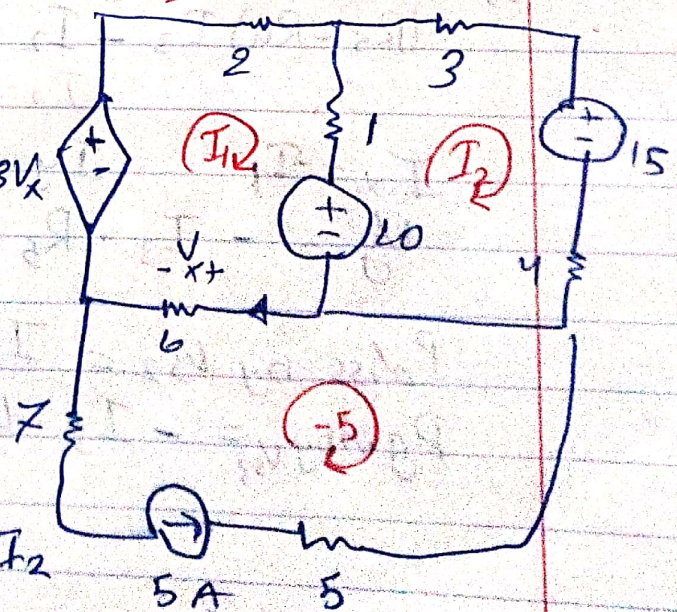 2
3
3Vx
+
-
I1
1
I2
+
-
15
+
-
20
Vx
- +
4
6
7
-5
I2
5A
5